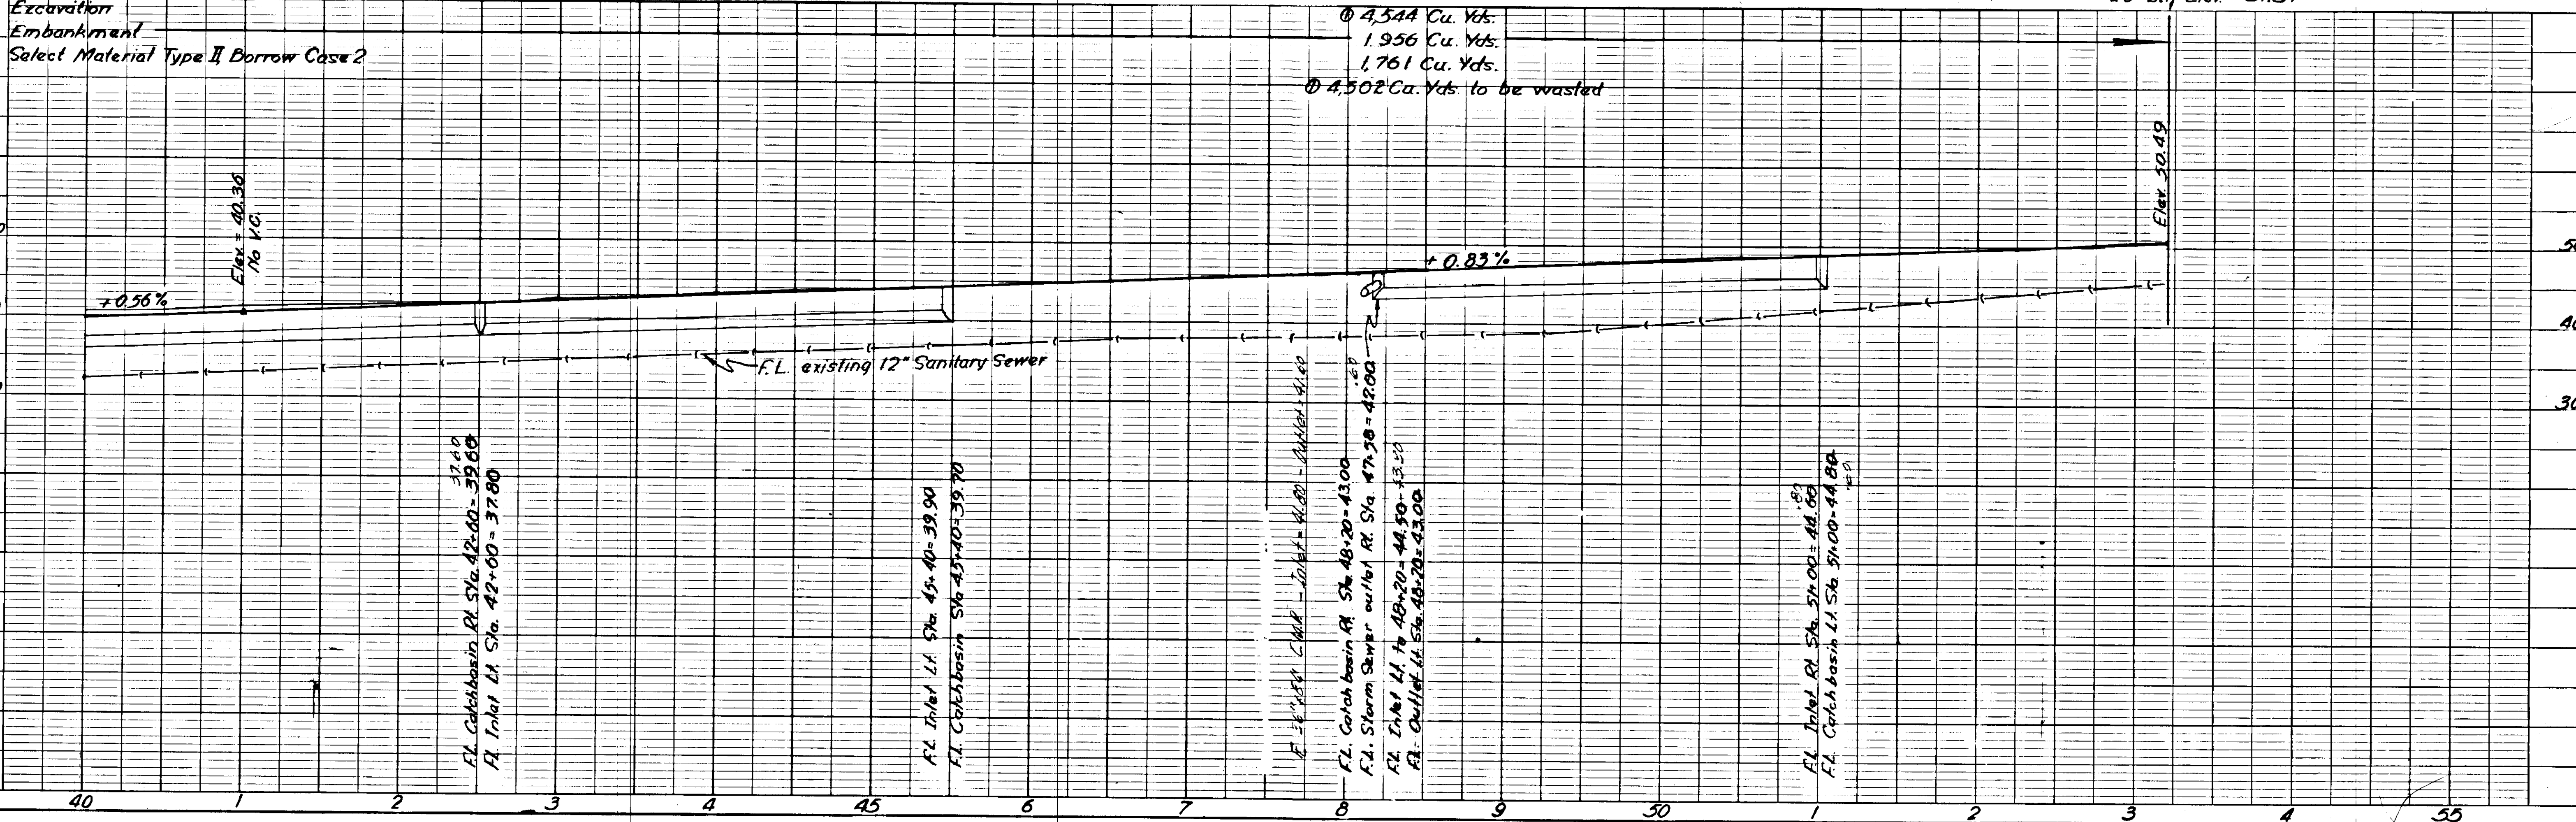 Excavation
Embankment
Select Material Type II Borrow Case 2
① 4,544 Cu. Yds.
1,956 Cu. Yds.
1,761 Cu. Yds.
① 4,502 Cu. Yds. to be wasted
Elev. = 40.36
No V.C.
Elev. 50.49
+0.56%
+0.83%
F.L. existing 12" Sanitary Sewer
40
30
37.60
F.L. Catchbasin Rt. Sta. 42+60=39.60
F.L. Inlet Lt. Sta. 42+60 = 37.80
F.L. Inlet Lt. Sta. 45+40=39.90
F.L. Catchbasin Sta 45+40=39.70
Inlet = 41.80 - Outlet = 41.60
F.L. Catchbasin Rt. Sta. 48+20=43.00
.60
F.L. Storm Sewer outlet Rt. Sta. 47+58=42.80
F.L. Inlet Lt. to 48+20=44.50 43.50
F.L. Outlet Lt. Sta. 48+20=43.00
.80
F.L. Inlet Rt. Sta. 51+00=44.60
F.L. Catchbasin Lt. Sta. 51+00=44.80
.60
40 1 2 3 4 45 6 7 8 9 50 1 2 3 4 55